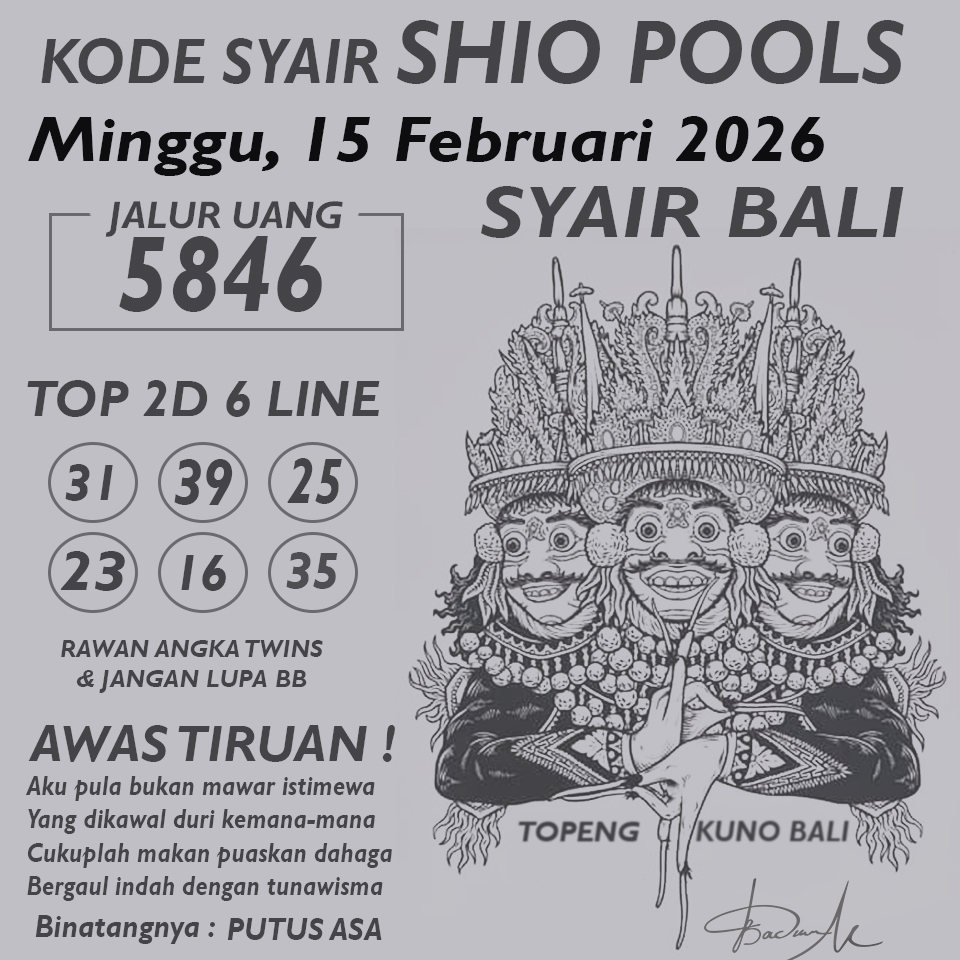 KODE SYAIR SHIO POOLS
Minggu, 15 Februari 2026
SYAIR BALI
JALUR UANG
5846
TOP 2D 6 LINE
31 39 25
23 16 35
RAWAN ANGKA TWINS
& JANGAN LUPA BB
AWAS TIRUAN !
Aku pula bukan mawar istimewa
Yang dikawal duri kemana-mana
Cukuplah makan puaskan dahaga
Bergaul indah dengan tunawisma
Binatangnya : PUTUS ASA
TOPENG KUNO BALI